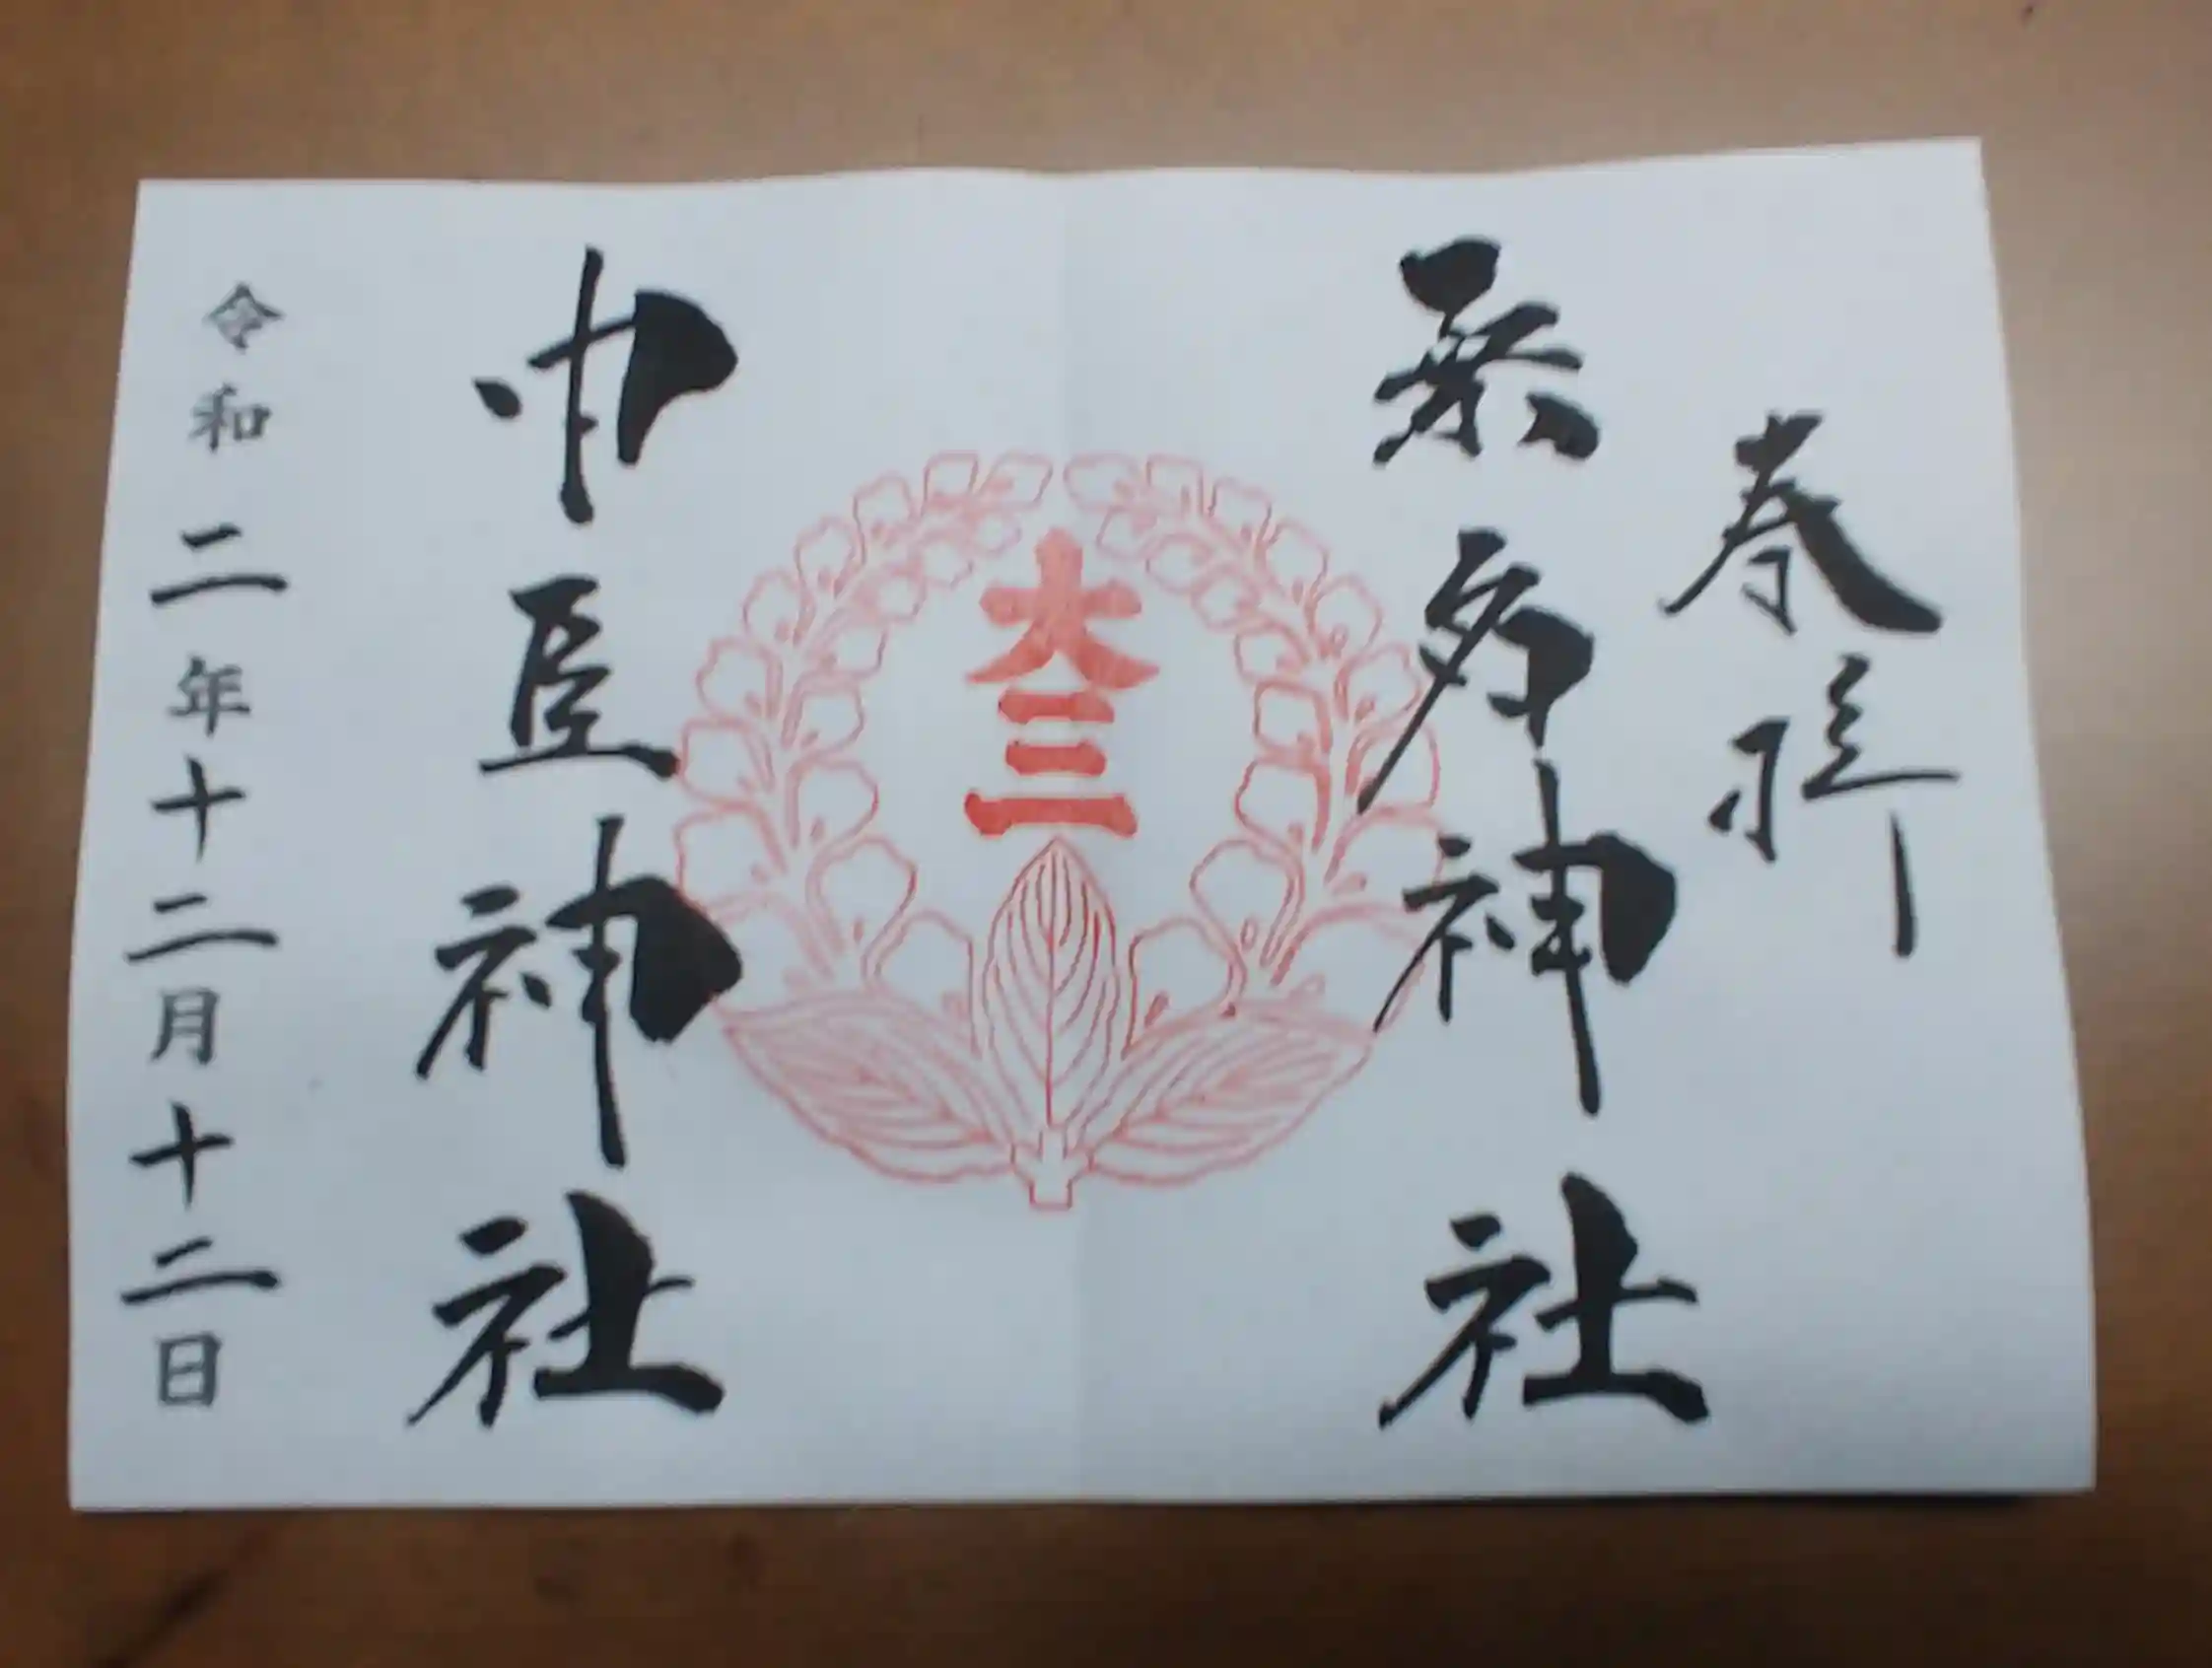 奉拝
桒名神社
大三
中臣神社
令和二年十二月十二日